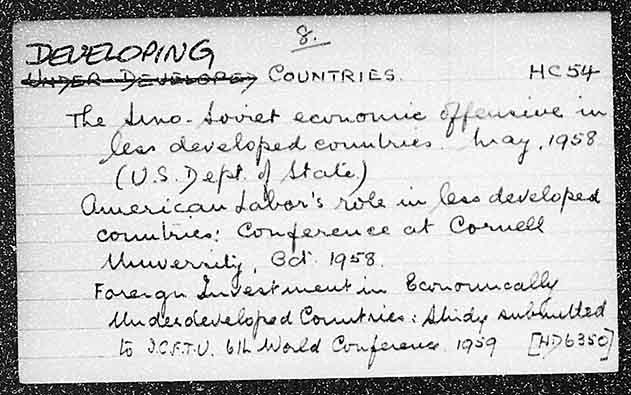 8.
DEVELOPING
UNDER-DEVELOPED COUNTRIES. HC54
The Sino-Soviet economic offensive in
less developed countries. May, 1958
(U.S. Dept. of State.)
American Labor's role in less developed
countries: Conference at Cornell
University, Oct. 1958.
Foreign Investment in Economically
Underdeveloped Countries: Study submitted
to I.C.F.T.U. 6th World Conference. 1959 [HD6350]